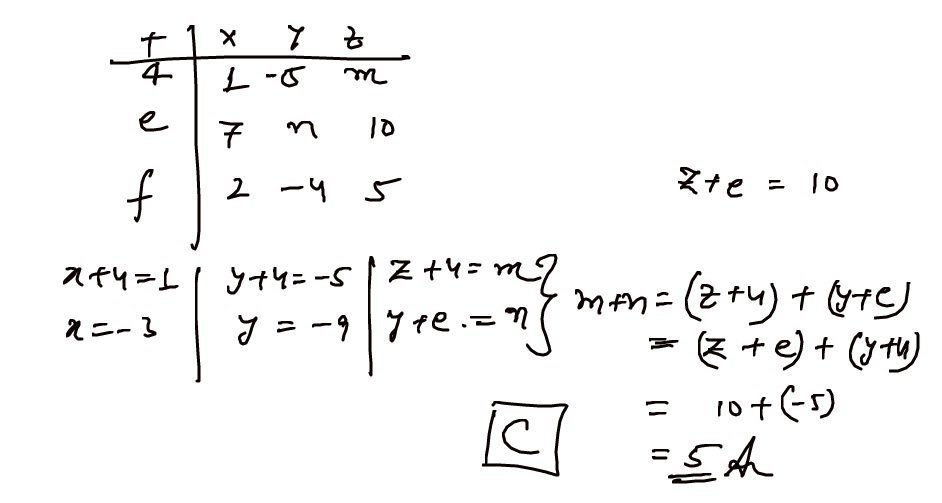 + x y z
4 1 -5 m
e 7 n 10
f 2 -4 5
z+e = 10
x+4=1 y+4=-5 z+4=m
x=-3 y=-9 y+e.=n
m+n=(z+4)+(y+e)
=(z+e)+(y+4)
= 10+(-5)
= 5 A
C